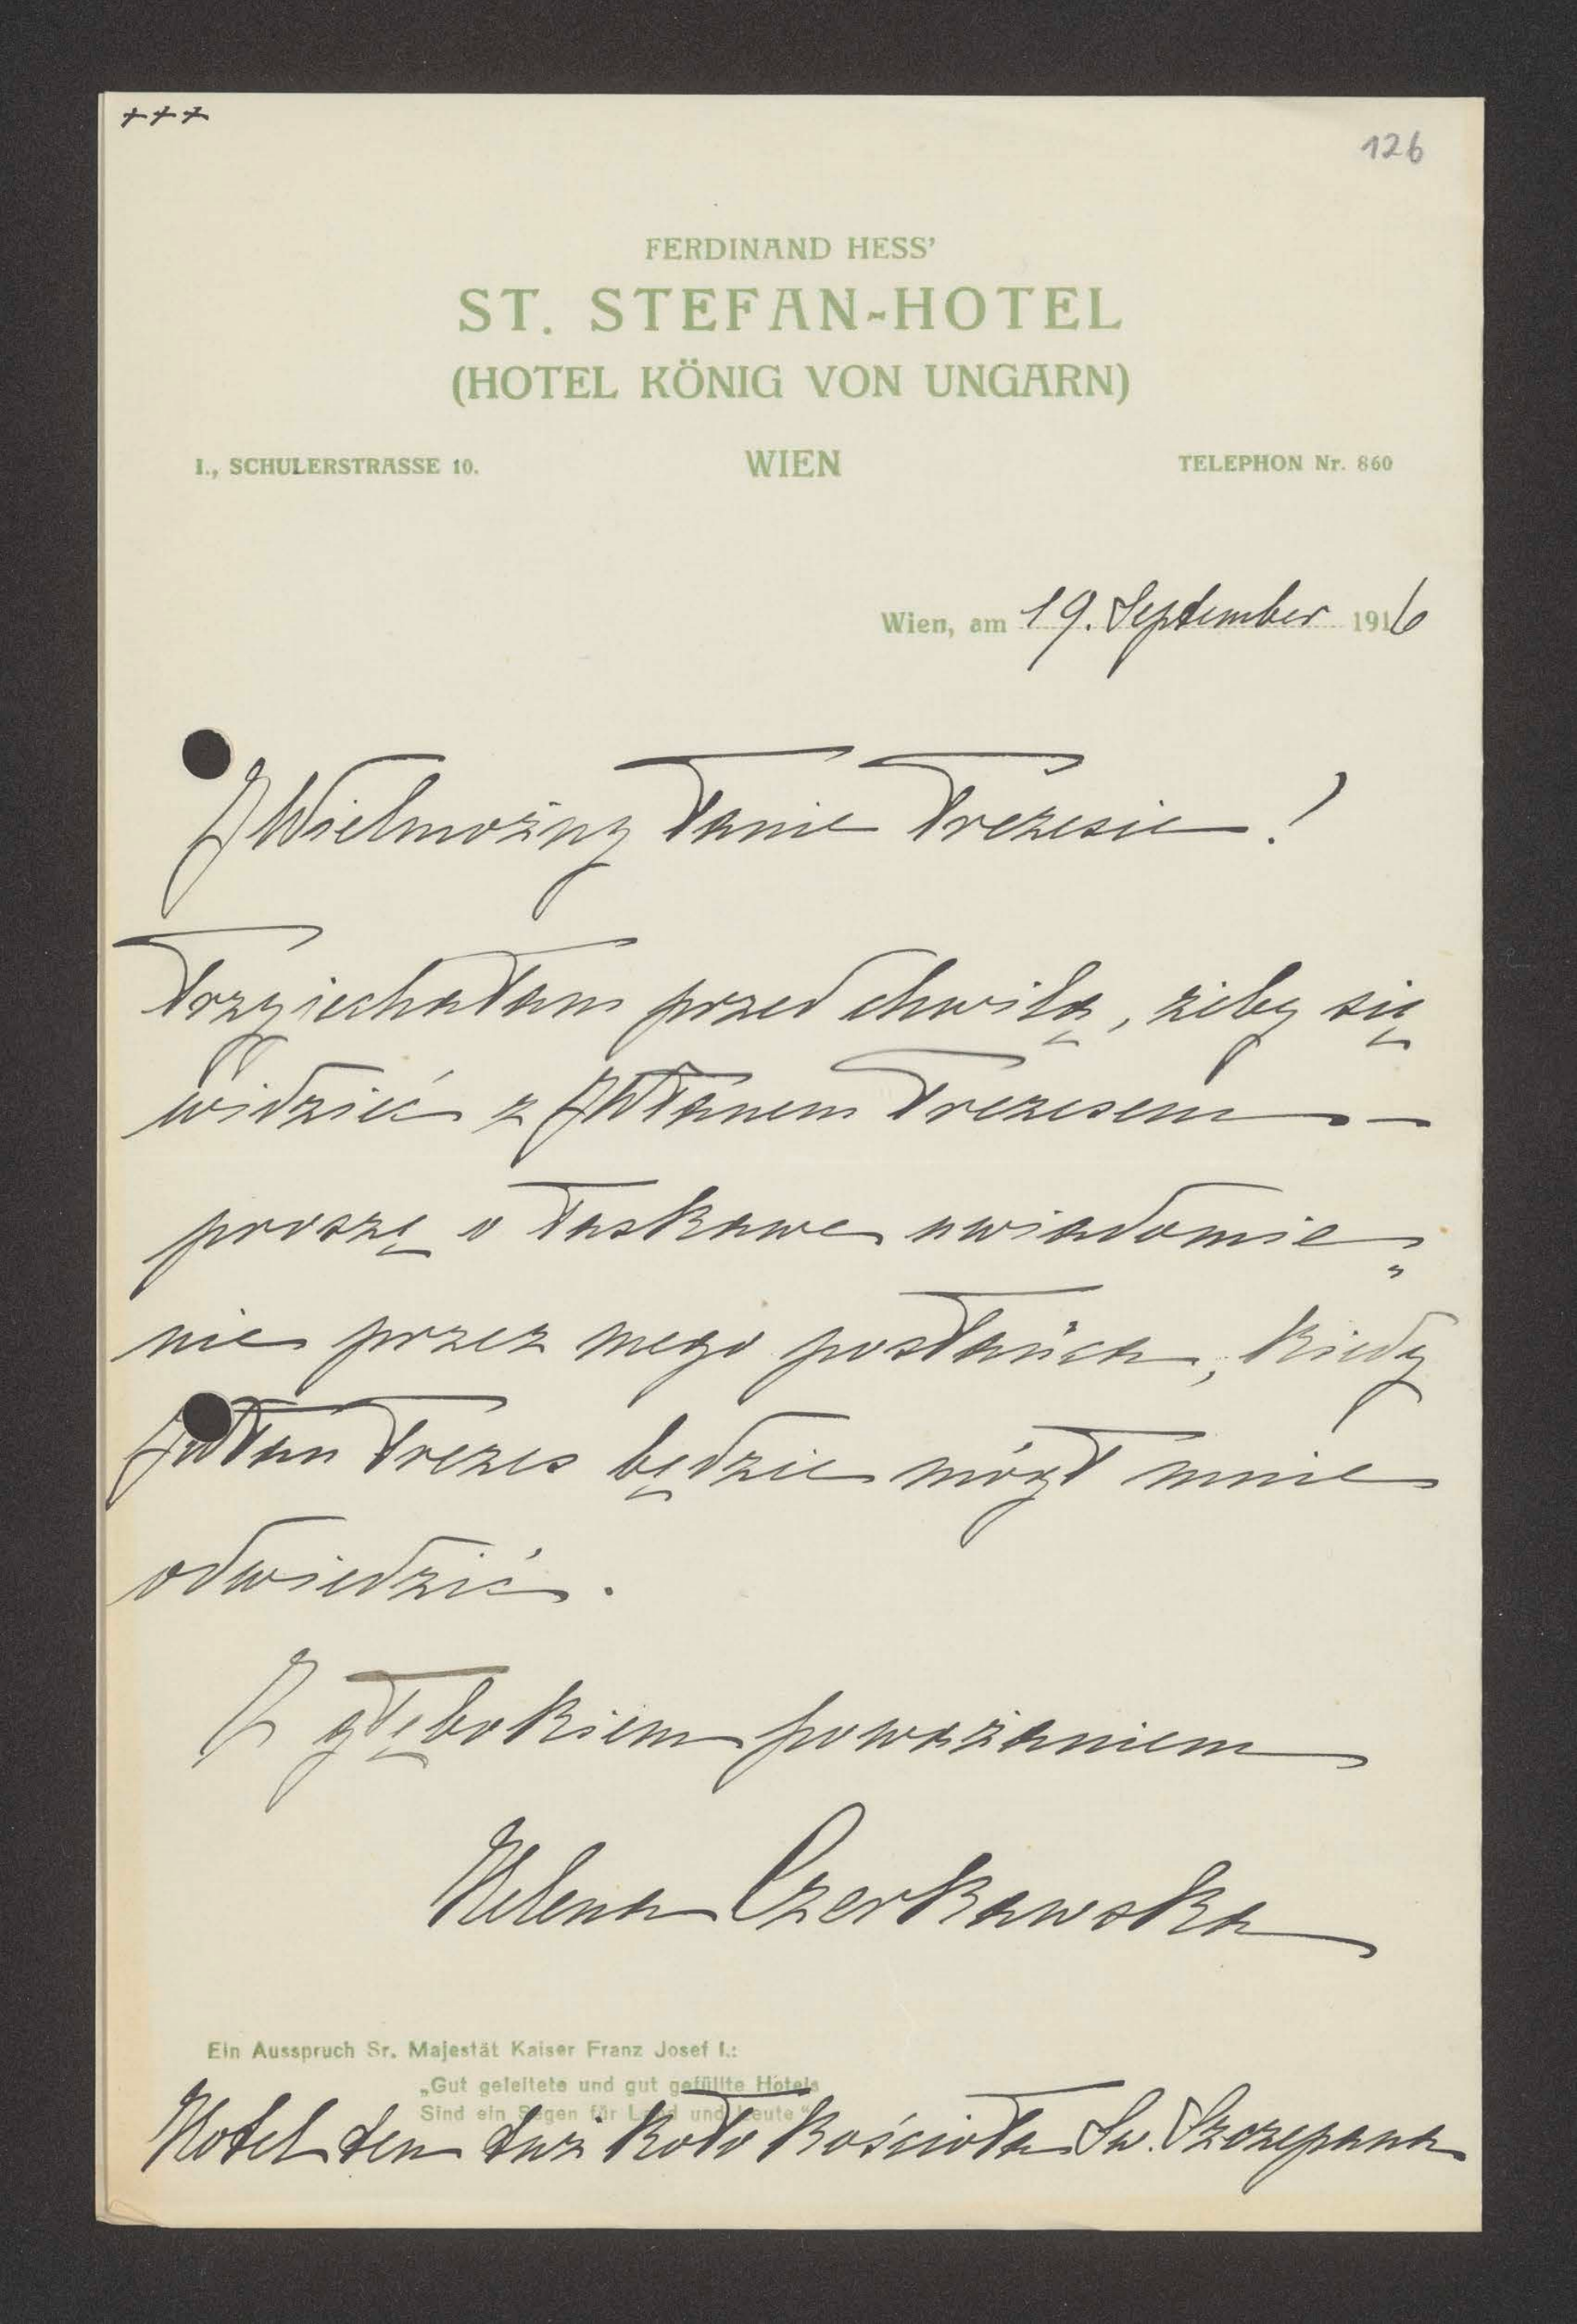 +++
126
FERDINAND HESS'
ST. STEFAN-HOTEL
(HOTEL KÖNIG VON UNGARN)
I., SCHULERSTRASSE 10. WIEN TELEPHON Nr. 860
Wien, am 19. September 1916
JWielmożny Panie Prezesie!
Przyjechałam przed chwilą, żeby się
widzieć z JWPanem Prezesem —
proszę o łaskawe uwiadomie„
nie przez mego posłańca, kiedy
JWPan Prezes będzie mógł mnie
odwiedzić.
Z głębokiem poważaniem
Helena Czerkawska
Ein Ausspruch Sr. Majestät Kaiser Franz Josef I.:
„Gut geleitete und gut gefüllte Hotels
Sind ein Segen für Land und Leute“
Hotel ten tuż koło kościoła Św. Szczepana